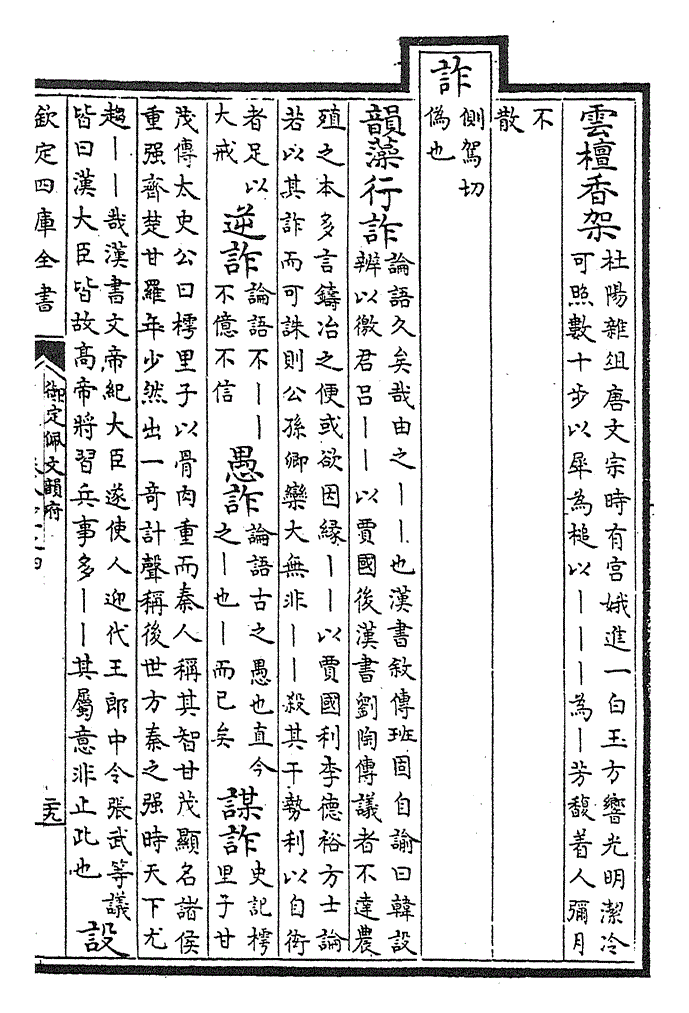 雲檀香架
杜陽雜俎唐文宗時有宮娥進一白玉方響光明潔冷
可照數十步以犀為槌以丨丨丨為丨芳馥着人彌月
不
散
詐
側駕切
偽也
韻藻行詐
論語久矣哉由之丨丨也漢書敘傳班固自諭曰韓設
辨以徼君呂丨丨以賈國後漢書劉陶傳議者不達農
殖之本多言鑄冶之便或欲因緣丨丨以賈國利李德裕方士論
若以其詐而可誅則公孫卿欒大無非丨丨殺其干勢利以自衒
者足以
大戒
逆詐
論語不丨丨
不億不信
愚詐
論語古之愚也直今
之丨也丨而已矣
謀詐
史記樗
里子甘
茂傳太史公曰樗里子以骨肉重而秦人稱其智甘茂顯名諸侯
重强齊楚甘羅年少然出一奇計聲稱後世方秦之强時天下尤
趨丨丨哉漢書文帝紀大臣遂使人迎代王郎中令張武等議
皆曰漢大臣皆故髙帝將習兵事多丨丨其屬意非止此也
設
欽定四庫全書
御定佩文韻府
二十九